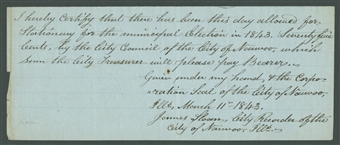 I hereby certify that there has been this day allowed for
Stationery for the municipal Election in 1843. Seventy five
Cents, by the City Council of the City of Nauvoo, which
sum the City Treasurer will please pay Bearer.
Given under my hand, & the Corpo-
ration Seal of the City of Nauvoo,
Ills, March 11th 1843.
James Sloan City Recorder of the
City of Nauvoo, Ills.